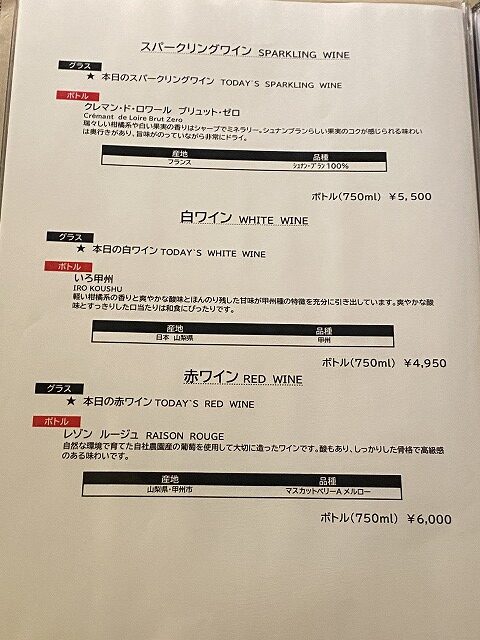 スパークリングワイン SPARKLING WINE
グラス
★ 本日のスパークリングワイン TODAY`S SPARKLING WINE
ボトル
クレマン・ド・ロワール ブリュット・ゼロ
Crémant de Loire Brut Zero
瑞々しい柑橘系や白い果実の香りはシャープでミネラリー。シュナンブランらしい果実のコクが感じられる味わい
は奥行きがあり、旨味がのっていながら非常にドライ。
産地 品種
フランス シュナン・ブラン 100%
ボトル(750ml) ¥5,500
白ワイン WHITE WINE
グラス
★ 本日の白ワイン TODAY`S WHITE WINE
ボトル
いろ甲州
IRO KOUSHU
軽い柑橘系の香りと爽やかな酸味とほんのり残した甘味が甲州種の特徴を充分に引き出しています。爽やかな酸
味とすっきりした口当たりは和食にぴったりです。
産地 品種
日本 山梨県 甲州
ボトル(750ml) ¥4,950
赤ワイン RED WINE
グラス
★ 本日の赤ワイン TODAY`S RED WINE
ボトル
レゾン ルージュ RAISON ROUGE
自然な環境で育てた自社農園産の葡萄を使用して大切に造ったワインです。酸もあり、しっかりした骨格で高級感
のある味わいです。
産地 品種
山梨県・甲州市 マスカットベリーA メルロー
ボトル(750ml) ¥6,000